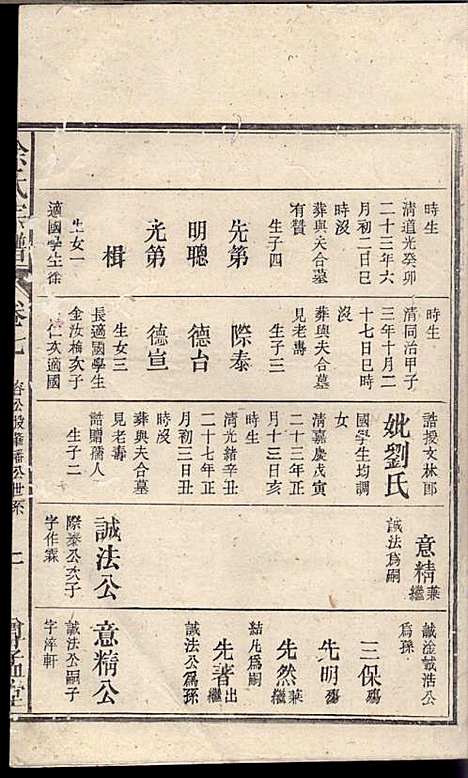 時生
清道光癸卯
二十三年六
月初二日巳
時沒
葬與夫合墓
有贊
生子四
先第
明聰
光第
楫
生女一
適國學生徐
時生
清同治甲子
三年十月二
十七日巳時
沒
葬與夫合墓
見老壽
生子三
際泰
德台
德宣
生女三
長適國學生
金汝楠次子
仁次適國
誥授文林郎
妣劉氏
國學生均調
女
清嘉慶戊寅
二十三年正
月十三日亥
時生
清光緒辛丑
二十七年正
月初三日丑
時沒
葬與夫合墓
見老壽
誥贈孺人
生子二
意精兼繼
誠法爲嗣
誠法公
際泰公次子
字作霖
誠淦誠浩公
爲孫
三保殤
先明殤
先然兼繼
結凡爲嗣
先著出繼
誠法公爲孫
意精公
誠法公嗣子
字滓軒
余氏宗譜
卷七
容公投肇潘公世系
二